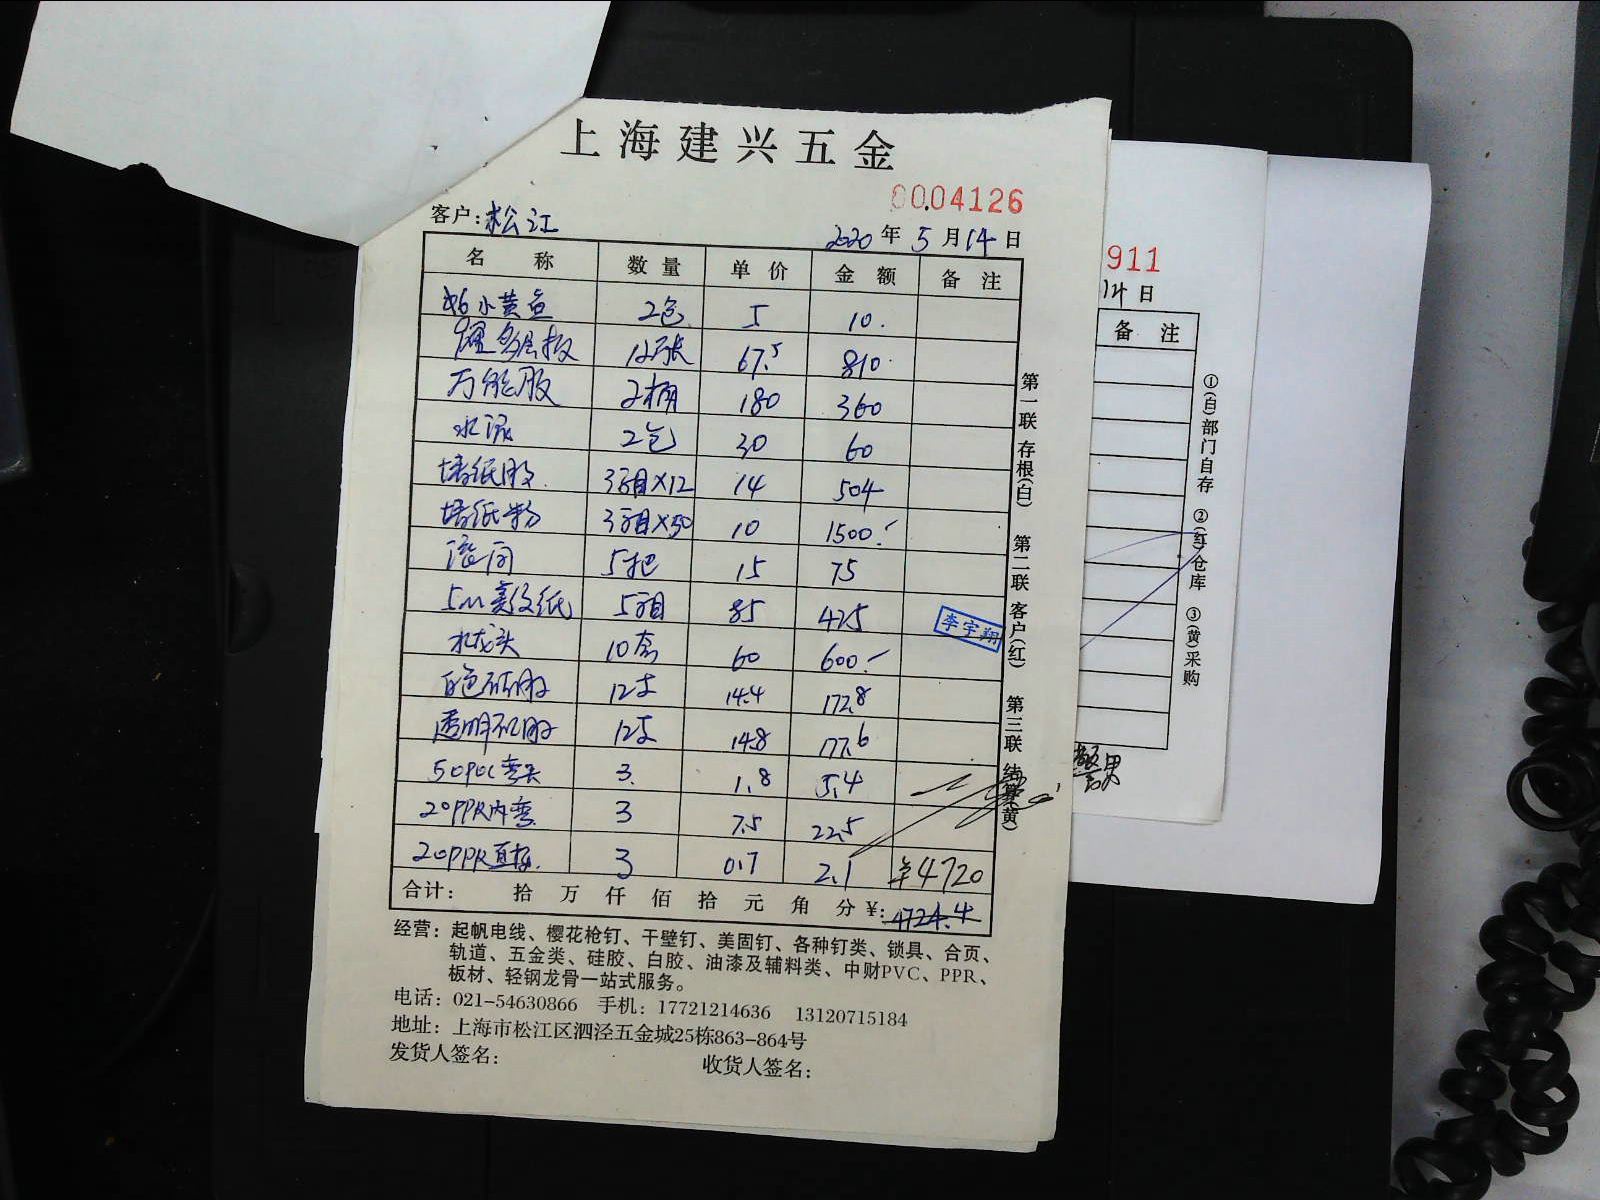 上海建兴五金
0004126
客户: 松江 2020 年 5 月 14 日
名 称 数量 单价 金额 备注
小黄鱼 2包 5 10.
多层板 12张 67.5 810.
万能胶 2桶 180 360
水泥 2包 30 60
墙纸胶 3箱×12 14 504
墙纸粉 3箱×50 10 1500.-
滚筒 5把 15 75
5m美纹纸 5箱 85 425
水龙头 10套 60 600.-
白色硅胶 12支 14.4 172.8
透明硅胶 12支 14.8 177.6
50PVC弯头 3 1.8 5.4
20PPR内弯 3 7.5 22.5
20PPR直接 3 0.7 2.1 ¥4720
合计: 拾 万 仟 佰 拾 元 角 分 ¥: 4724.4
李宇翔
第一联 存根(白) 第二联 客户(红) 第三联 结算(黄)
经营: 起帆电线、樱花枪钉、干壁钉、美固钉、各种钉类、锁具、合页、
轨道、五金类、硅胶、白胶、油漆及辅料类、中财PVC、PPR、
板材、轻钢龙骨一站式服务。
电话: 021-54630866 手机: 17721214636 13120715184
地址: 上海市松江区泗泾五金城25栋863-864号
发货人签名: 收货人签名:
911
14 日
备 注
①(白)部门自存 ②(红)仓库 ③(黄)采购